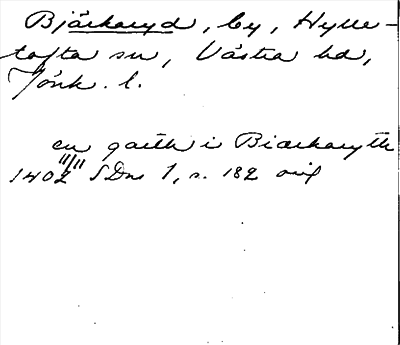 Bjärkaryd, by, Hylle-
tofta sn, Västra hd,
Jönk. l.
en gaeth i Biærkaryth
1402 11/11 SDns 1, s. 182 orig